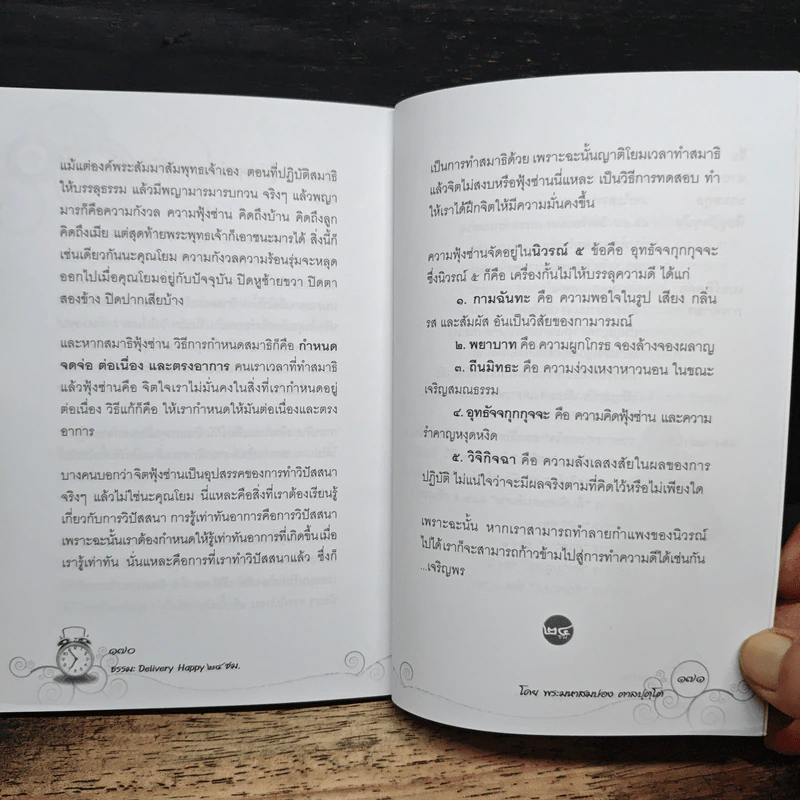 แม้แต่องค์พระสัมมาสัมพุทธเจ้าเอง ตอนที่ปฏิบัติสมาธิ
ให้บรรลุธรรม แล้วมีพญามารมารบกวน จริงๆ แล้วพญา
มารก็คือความกังวล ความฟุ้งซ่าน คิดถึงบ้าน คิดถึงลูก
คิดถึงเมีย แต่สุดท้ายพระพุทธเจ้าก็เอาชนะมารได้ สิ่งนี้ก็
เช่นเดียวกันนะคุณโยม ความกังวลความร้อนรุ่มจะหลุด
ออกไปเมื่อคุณโยมอยู่กับปัจจุบัน ปิดหูซ้ายขวา ปิดตา
สองข้าง ปิดปากเสียบ้าง
และหากสมาธิฟุ้งซ่าน วิธีการกำหนดสมาธิก็คือ กำหนด
จดจ่อ ต่อเนื่อง และตรงอาการ คนเราเวลาที่ทำสมาธิ
แล้วฟุ้งซ่านคือ จิตใจเราไม่มั่นคงในสิ่งที่เรากำหนดอยู่
ต่อเนื่อง วิธีแก้ก็คือ ให้เรากำหนดให้มันต่อเนื่องและตรง
อาการ
บางคนบอกว่าจิตฟุ้งซ่านเป็นอุปสรรคของการทำวิปัสสนา
จริงๆ แล้วไม่ใช่นะคุณโยม นี่แหละคือสิ่งที่เราต้องเรียนรู้
เกี่ยวกับการวิปัสสนา การรู้เท่าทันอาการคือการวิปัสสนา
เพราะฉะนั้นเราต้องกำหนดให้รู้เท่าทันอาการที่เกิดขึ้นเมื่อ
เรารู้เท่าทัน นั่นแหละคือการที่เราทำวิปัสสนาแล้ว ซึ่งก็
๑๗๐
ธรรมะ Delivery Happy ๒๔ ชม.
เป็นการทำสมาธิด้วย เพราะฉะนั้นญาติโยมเวลาทำสมาธิ
แล้วจิตไม่สงบหรือฟุ้งซ่านนี่แหละ เป็นวิธีการทดสอบ ทำ
ให้เราได้ฝึกจิตให้มีความมั่นคงขึ้น
ความฟุ้งซ่านจัดอยู่ในนิวรณ์ ๕ ข้อคือ อุทธัจจกุกกุจจะ
ซึ่งนิวรณ์ ๕ ก็คือ เครื่องกั้นไม่ให้บรรลุความดี ได้แก่
๑. กามฉันทะ คือ ความพอใจในรูป เสียง กลิ่น
รส และสัมผัส อันเป็นวิสัยของกามารมณ์
๒. พยาบาท คือ ความผูกโกรธ จองล้างจองผลาญ
๓. ถีนมิทธะ คือ ความง่วงเหงาหาวนอน ในขณะ
เจริญสมณธรรม
๔. อุทธัจจกุกกุจจะ คือ ความคิดฟุ้งซ่าน และความ
รำคาญหงุดหงิด
๕. วิจิกิจฉา คือ ความลังเลสงสัยในผลของการ
ปฏิบัติ ไม่แน่ใจว่าจะมีผลจริงตามที่คิดไว้หรือไม่เพียงใด
เพราะฉะนั้น หากเราสามารถทำลายกำแพงของนิวรณ์
ไปได้เราก็จะสามารถก้าวข้ามไปสู่การทำความดีได้เช่นกัน
...เจริญพร
๒๔
ชม
โดย พระมหาสมปอง ตาลปุตฺโต
๑๗๑